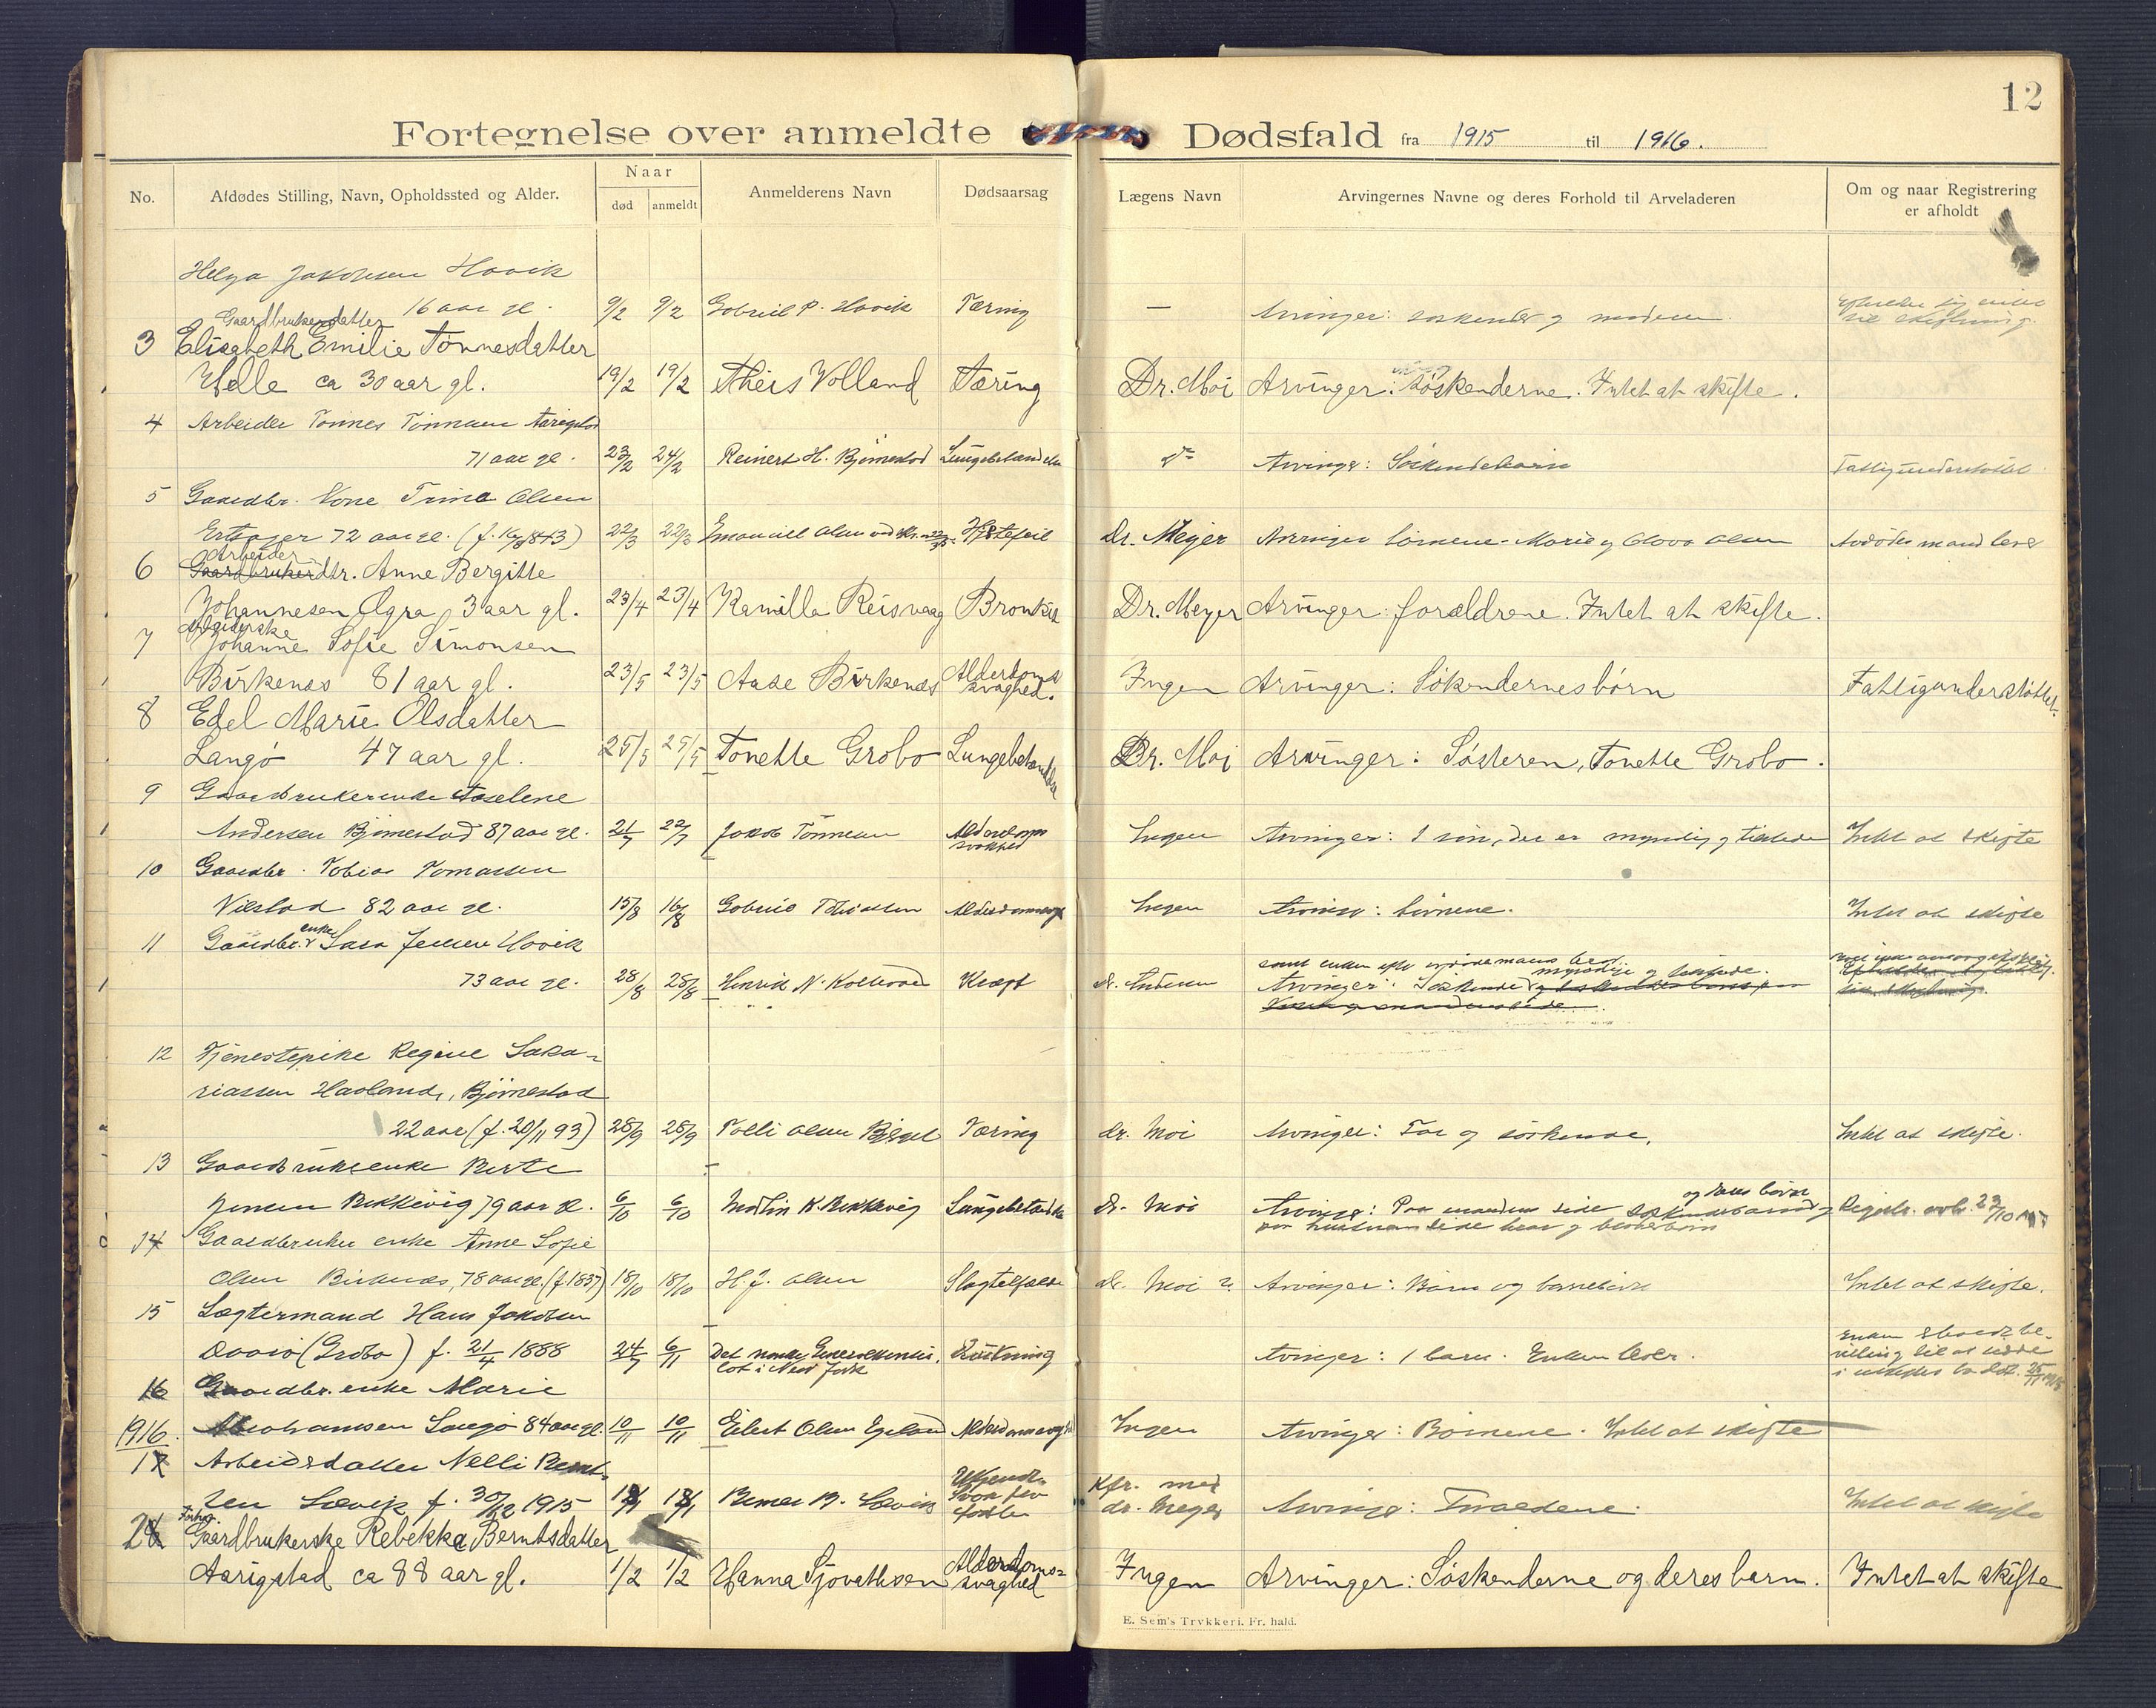 12
Fortegnelse over anmeldte Dødsfald fra 1915 til 1916.
No. Afdødes Stilling, Navn, Opholdssted og Alder. Naar død anmeldt Anmelderens Navn Dødsaarsag Lægens Navn Arvingernes Navne og deres Forhold til Arveladeren Om og naar Registrering er afholdt
Helga Jakobsen Hovik
16 aar gl. 9/2 9/2 Gabriel P. Hovik Tæring — Arvinger: søskende og moderen
Gaardbrukerdatter
3 Elisabeth Emilie Tønnesdatter
Helle ca 30 aar gl. 19/2 19/2 Theis Volland Tæring Dr. Moi Arvinger: Søskenderne. Intet at skifte.
4 Arbeider Tønnes Tønnesen Aarigstad
71 aar gl. 23/2 24/2 Reinert H. Bjørnestad Lungebetændelse do Arvinger: Søskendebarn Fattigunderstøttet
5 Gaardbr. Kone Trine Olsen
72 aar gl. 22/3 22/3 Emanuel Olsen Hjertefeil Dr. Meyer Arvinger børnene Marie og Olava Olsen Avdødes mand lever
Arbeider
6 Gaardbrukerdtr. Anne Bergitte
Johannesen Øgra 3 aar gl. 23/4 23/4 Kamilla Reisvaag Bronkit Dr. Meyer Arvinger: forældrene. Intet at skifte.
Arbeiderske
7 Johanne Sofie Simonsen
Birkenes 81 aar gl. 23/5 23/5 Aase Birkenes Alderdoms svaghed. Ingen Arvinger: Søkendernesbørn Fattigunderstøttet.
8 Edel Marie Olsdatter
Langø 47 aar gl. 25/5 25/5 Tonette Grobo Lungebetændelse Dr. Moi Arvinger: Søsteren, Tonette Grobo.
9 Gaardbrukerenke Aaselene
Andersen Bjørnestad 87 aar gl. 21/7 22/7 Jakob Tønnesen Alderdoms svakhed Ingen Arvinger: 1 søn, der er myndig og tilstede Intet at skifte
10 Gaardbr. Tobias Tomassen
82 aar gl. 15/8 16/8 Gabriel Tobiassen Ingen Arvinger: børnene. Intet at skifte
11 Gaardbr. enke Sara Jensen Hovik
73 aar gl. 28/8 28/8 Henrik N. Kolland Kræft dr. Andersen Arvinger: Søskende myndige og tilstede.
12 Tjenestepike Regine Saka-
riassen Haaland, Bjørnestad
22 aar (f. 20/11 93) 28/9 28/9 Tolli Olsen Tæring dr. Moi Arvinger: Far og søskende, Intet at skifte.
13 Gaardbrukerenke Berte
Jensen Rekkevig 79 aar gl. 6/10 6/10 Malin K. Rekkevig Lungebetændelse dr. Moi Arvinger: Paa mandens side søskendebarn og
og deres børn
paa hustruens side Registr. avh. 23/10
14 Gaardbruker enke Anne Sofie
Olsen Birkenes, 78 aar gl. (f. 1837) 18/10 18/10 H. J. Olsen Slagtilfælde dr. Moi Arvinger: Børn og barnebørn Intet at skifte.
15 Lægtermand Hans Jakobsen
(Grobo) f. 21/4 1888 24/7 6/11 Det norske Generalkonsu-
lat i New York Drukning Arvinger: 1 barn. Enken lever. Enken bevilling til at sidde
i uskiftet bo 25/11 1915
16 Gaardbr. enke Marie
Abrahamsen Langø 84 aar gl. 10/11 10/11 Eilert Olsen Egeland Alderdomssvaghed Ingen Arvinger: Børnene. Intet at skifte
1916
1 Arbeidsdatter Nelli Bernt-
sen Løvik f. 30/12 1915 Løvik Ukjendt
Svak fra
fødslen Kfr. med
dr. Meyer Arvinger: Forældrene. Intet at skifte
Forhv.
2 Gaardbrukerske Rebekka Berntsdatter
Aarigstad ca 88 aar gl. 1/2 1/2 Hanna Sjovathsen Alderdoms-
svaghed Ingen Arvinger: Søskenderne og deres barn. Intet at skifte
E. Sem's Trykkeri. Fr. hald.